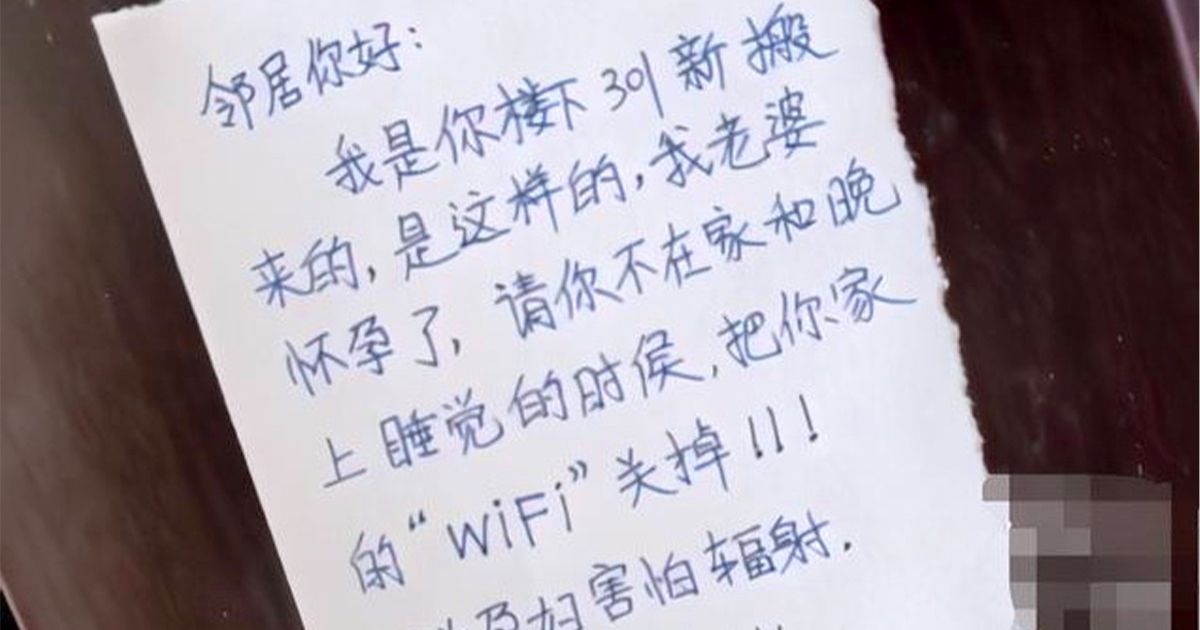 邻居你好:
我是你楼下301新搬
来的,是这样的,我老婆
怀孕了,请你不在家和晚
上睡觉的时候,把你家
的“WiFi”关掉!!!
孕妇害怕辐射.